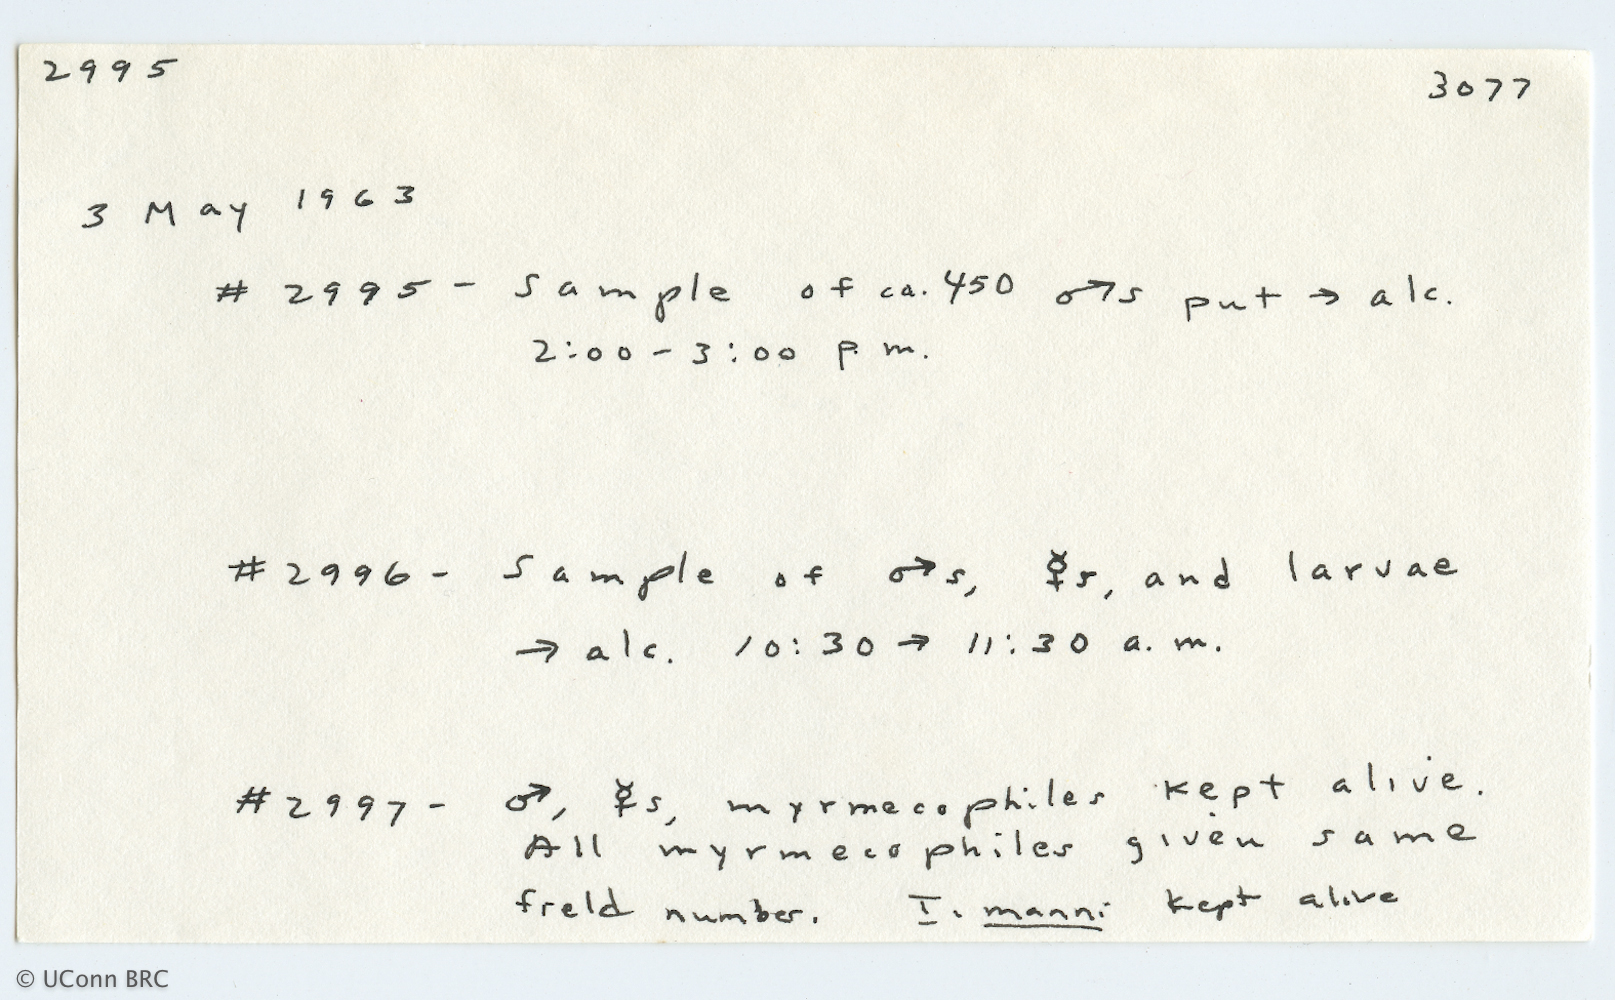 2995
3077
3 May 1963
# 2995 - Sample of ca. 450 ♂s put → alc.
2:00 - 3:00 p.m.
# 2996 - Sample of ♂s, ☿s, and larvae
→ alc. 10:30 → 11:30 a.m.
# 2997 - ♂, ☿s, myrmecophiles kept alive.
All myrmecophiles given same
field number. I. manni kept alive
© UConn BRC